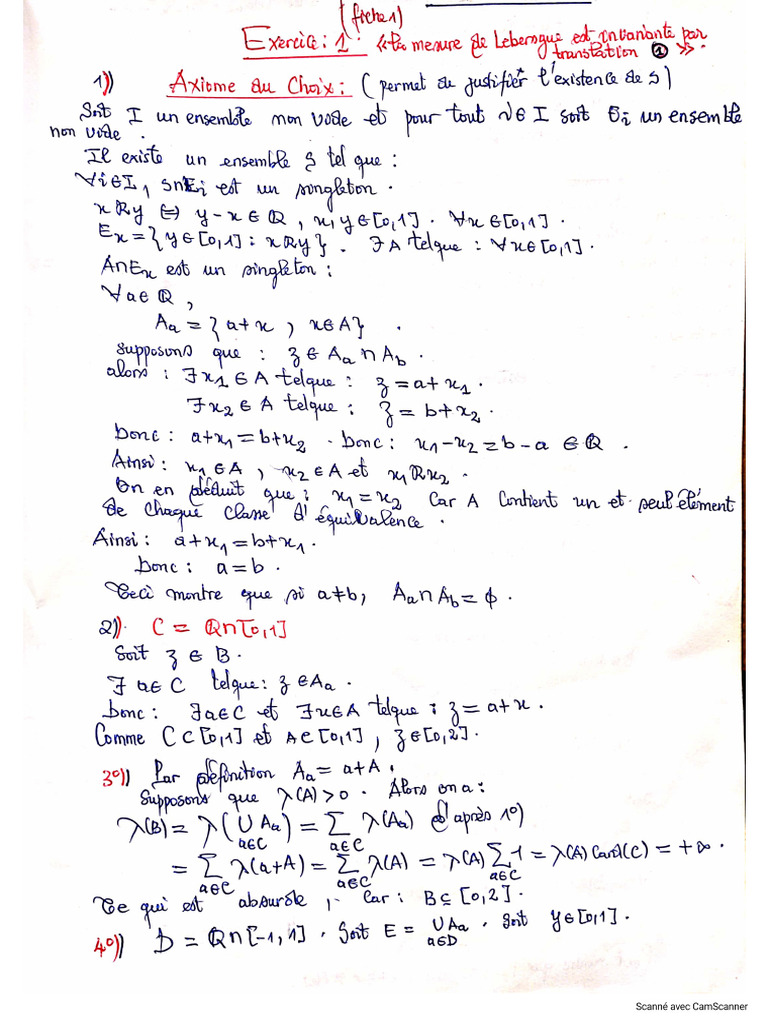 (fiche 1)
Exercice: 1 : « La mesure de Lebesgue est invariante par
translation ① ».
1)) Axiome du Choix : ( permet de justifier l'existence de S)
Soit I un ensemble non vide et pour tout i ∈ I soit Ei un ensemble
non vide.
Il existe un ensemble S tel que :
∀i∈I, S∩Ei est un singleton.
xRy ⇔ y-x ∈ Q, x,y∈[0,1]. ∀x∈[0,1].
Ex={y∈[0,1] : xRy}. ∃A telque : ∀x∈[0,1].
A∩Ex est un singleton :
∀a∈Q,
Aa = {a+x, x∈A}.
Supposons que : z ∈ Aa ∩ Ab.
alors : ∃x1 ∈ A telque : z = a+x1.
∃x2 ∈ A telque : z = b+x2.
Donc : a+x1=b+x2. Donc : x1-x2=b-a ∈ Q.
Ainsi : x1∈A, x2∈A et x1Rx2.
On en déduit que : x1=x2 Car A Contient un et seul élément
de chaque classe d'équivalence.
Ainsi : a+x1=b+x1.
Donc : a=b.
Ceci montre que si a≠b, Aa∩Ab=ϕ.
2)). C = Q∩[0,1]
Soit z ∈ B.
∃ a∈C telque : z∈Aa.
Donc : ∃a∈C et ∃x∈A telque : z=a+x.
Comme C⊂[0,1] et A⊂[0,1], z∈[0,2].
3°)) Par définition Aa = a+A.
Supposons que λ(A)>0. Alors on a :
λ(B) = λ(∪Aa) = Σ λ(Aa) d'après 1°)
a∈C a∈C
= Σ λ(a+A) = Σ λ(A) = λ(A) Σ1 = λ(A) Card(C) = +∞.
a∈C a∈C a∈C
Ce qui est absurde, Car : B⊆[0,2].
4°)) D = Q∩[-1,1]. Soit E = ∪Aa. Soit y∈[0,1].
a∈D
Scanné avec CamScanner